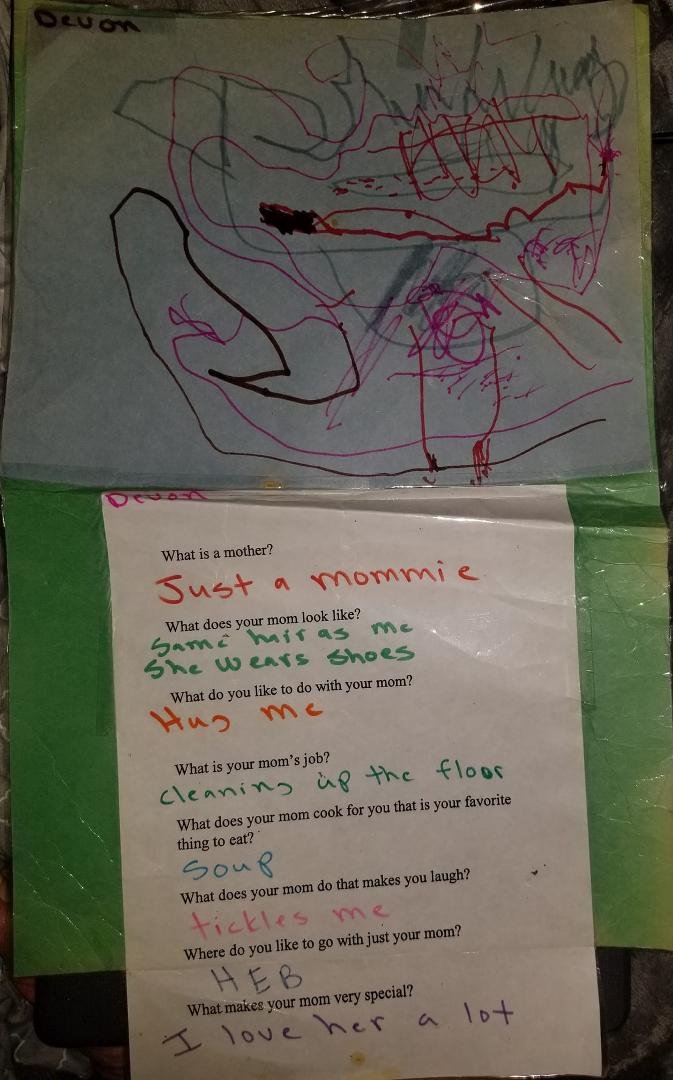 Devon
Devon
What is a mother?
Just a mommie
What does your mom look like?
Same hair as me
She wears shoes
What do you like to do with your mom?
Hug me
What is your mom's job?
cleaning up the floor
What does your mom cook for you that is your favorite
thing to eat?
Soup
What does your mom do that makes you laugh?
tickles me
Where do you like to go with just your mom?
HEB
What makes your mom very special?
I love her a lot